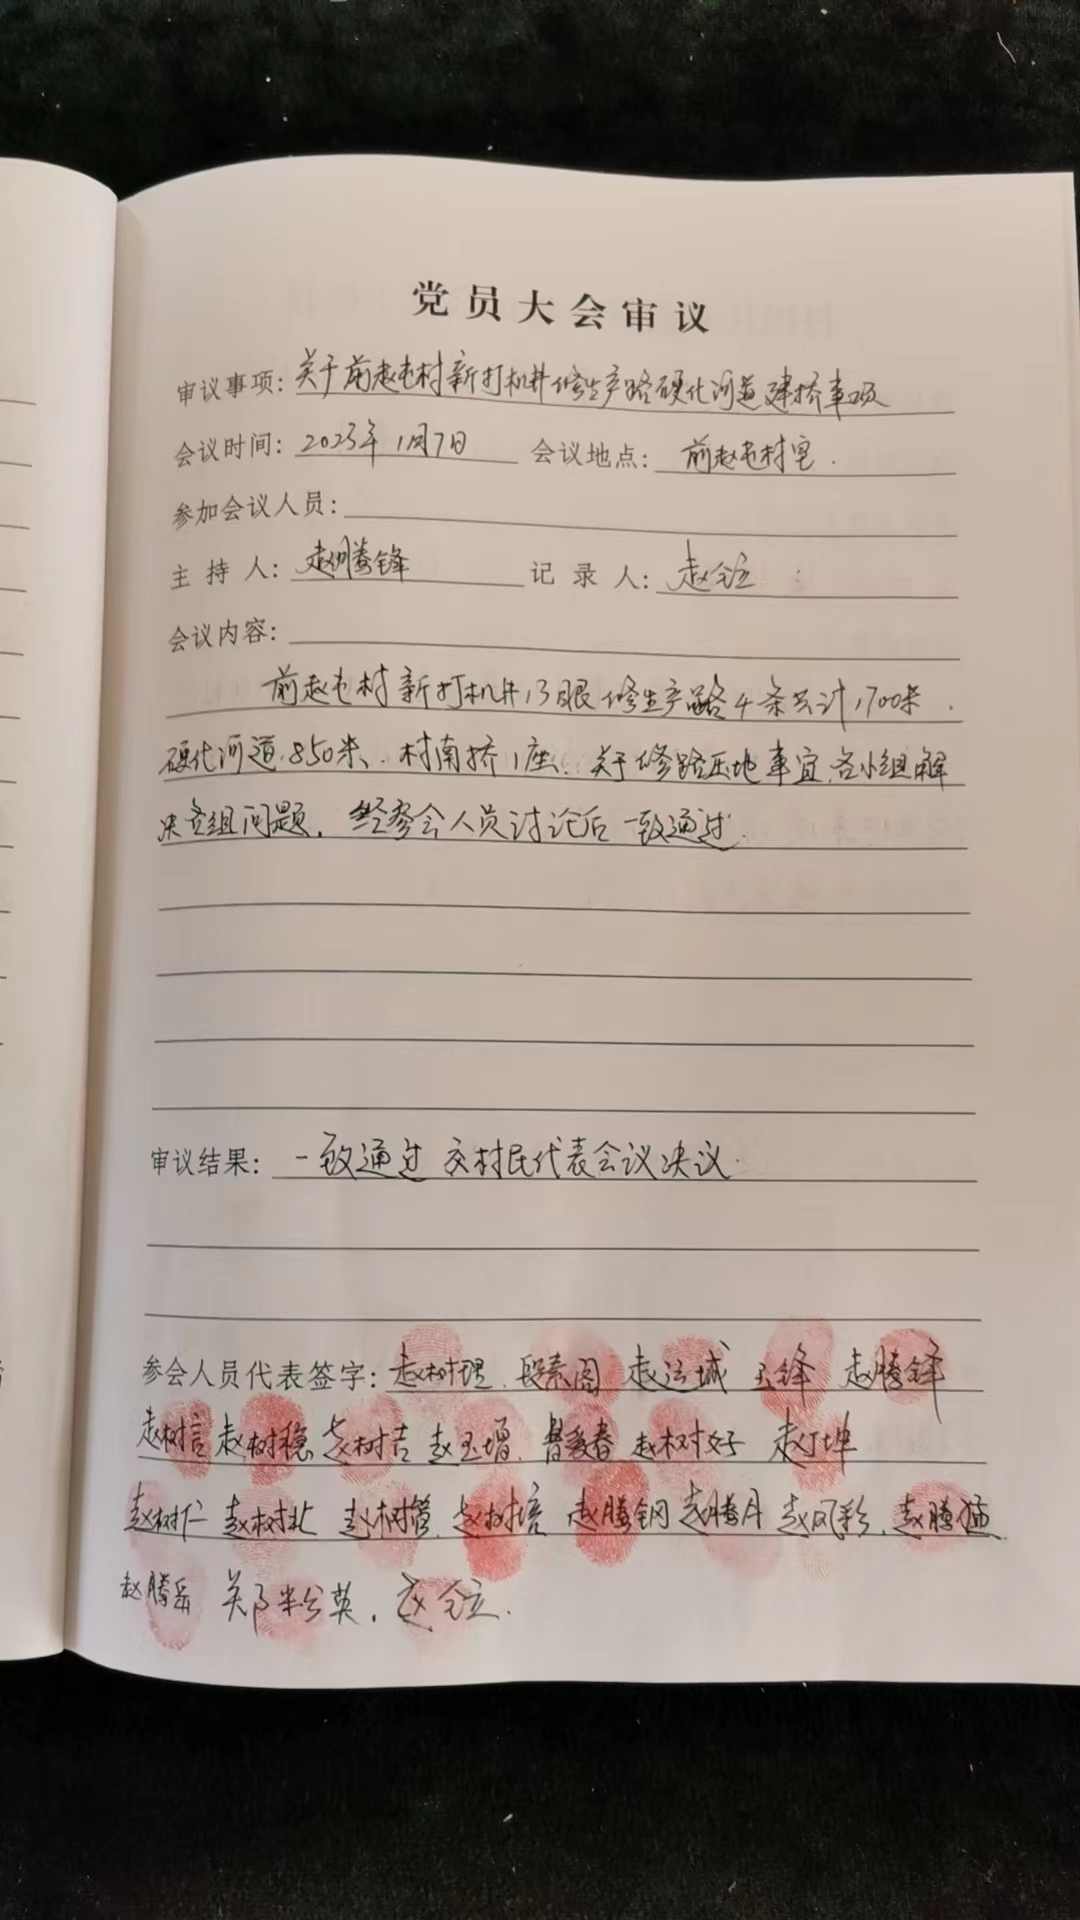 党员大会审议
审议事项：关于前赵屯村新打机井修生产路硬化河道建桥事项
会议时间：2023年1月7日 会议地点：前赵屯村室.
参加会议人员：
主持人：赵腾锋 记录人：赵全立
会议内容：
前赵屯村新打机井13眼修生产路4条共计1700米.
硬化河道850米、村南桥1座.关于修路压地事宜.各小组解
决各组问题.经参会人员讨论后一致通过.
审议结果：一致通过 交村民代表会议决议.
参会人员代表签字：赵树理.段素阁 赵运城 玉锋 赵腾锋
赵树言 赵树稳 赵树吉 赵玉增. 爱春 赵树好 赵 坤
赵树仁 赵树 赵树 赵树培 赵腾钢 赵腾月 赵风彩.赵腾猛
赵腾岳 郑 英. 赵全立.